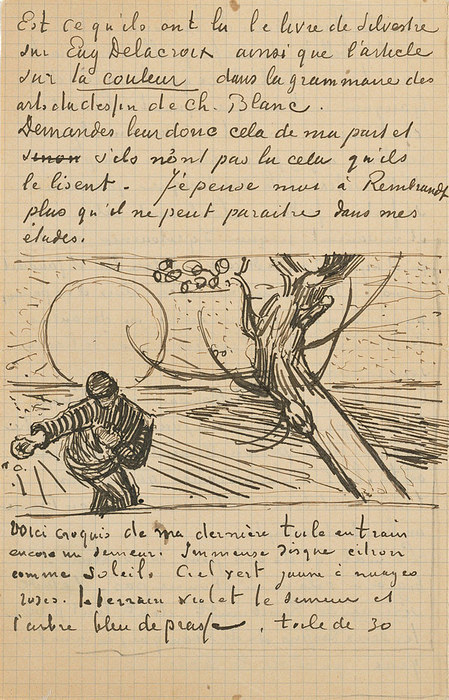 Est ce qu'ils ont lu le livre de Silvestre
sur Eug Delacroix ainsi que l'article
sur la couleur dans la grammaire des
arts du dessin de Ch. Blanc.
Demandes leur donc cela de ma part et
sinon s'ils n'ont pas lu cela qu'ils
le lisent. Je pense moi à Rembrandt
plus qu'il ne peut paraitre dans mes
études.
Voici croquis de ma dernière toile en train
encore un semeur. Immense disque citron
comme soleil. Ciel vert jaune à nuages
roses. le terrain violet le semeur et
l'arbre bleu de prusse. toile de 30